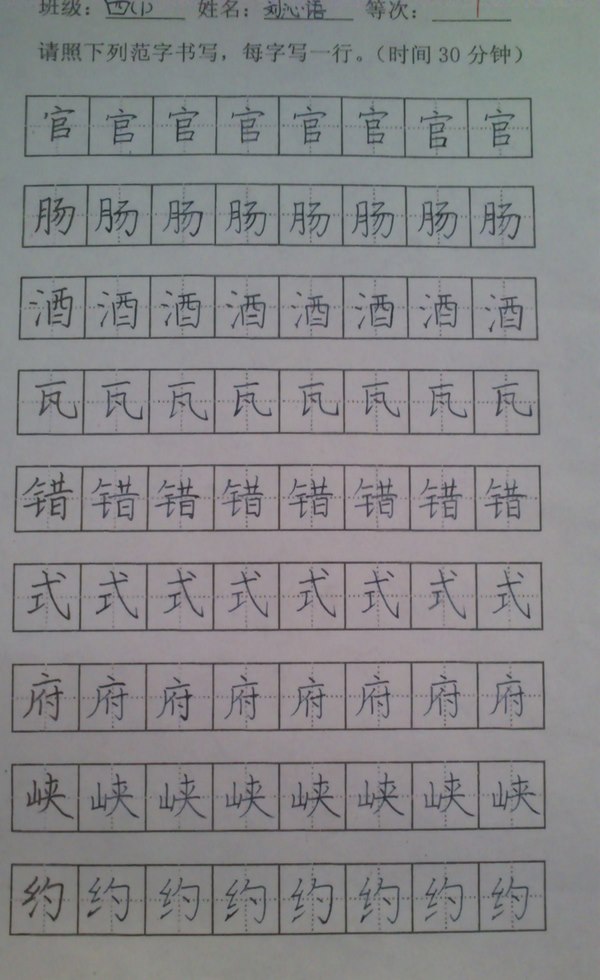 班级：四(1) 姓名：刘心语 等次：
请照下列范字书写，每字写一行。（时间30分钟）
官官官官官官官官
肠肠肠肠肠肠肠肠
酒酒酒酒酒酒酒酒
瓦瓦瓦瓦瓦瓦瓦瓦
错错错错错错错错
式式式式式式式式
府府府府府府府府
峡峡峡峡峡峡峡峡
约约约约约约约约